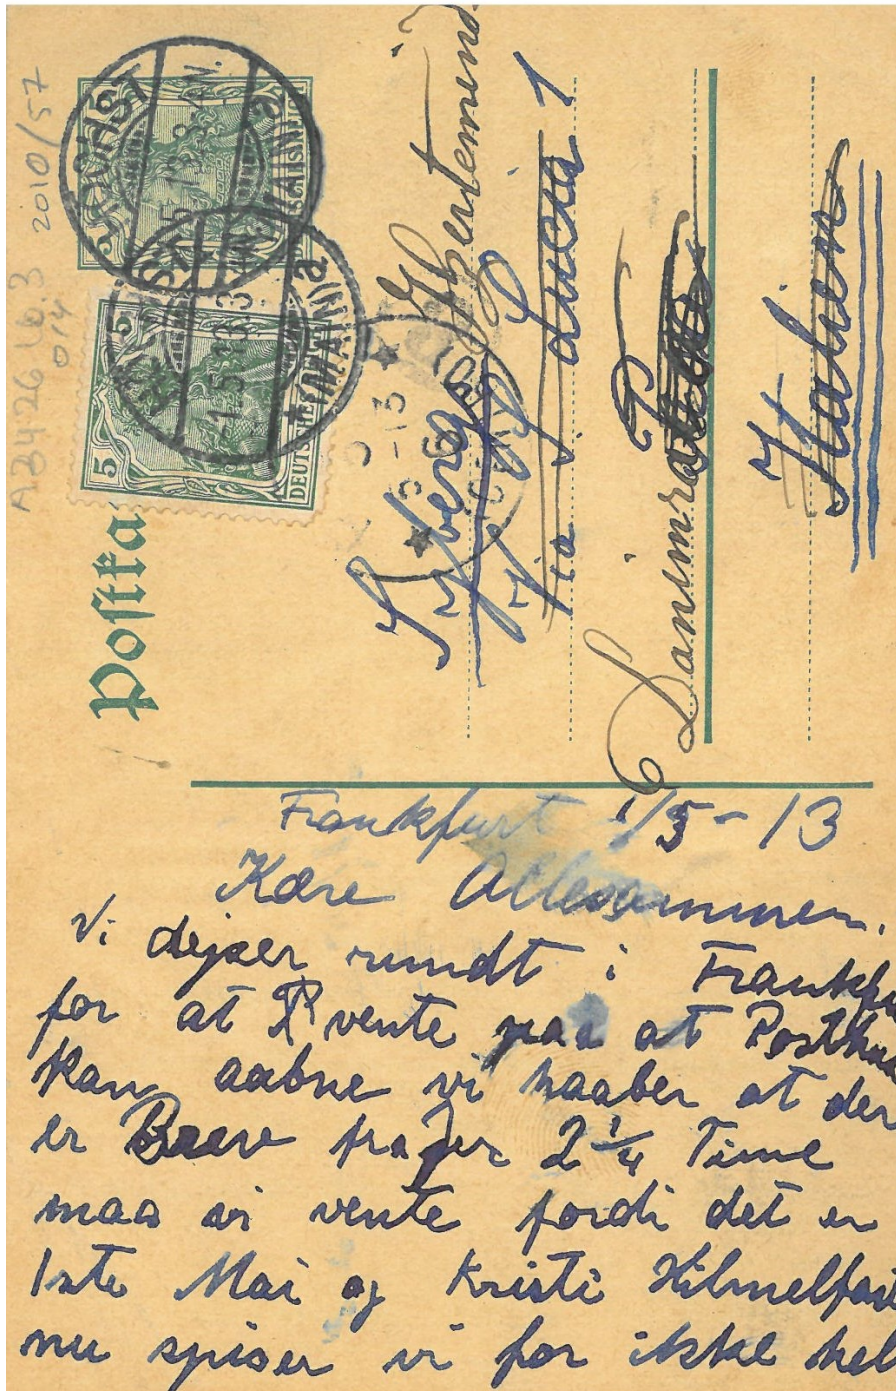 AB426 lb.3 2010/57
014
Postka
HÖCHST
(MAIN) a
1.5.13.3-4N.
DEUTSCHES
5
Syberg Kjerteminde
Via S. Lucia 1
Danimarca
Italien
Frankfurt 1/5-13
Kære Allesammen.
Vi dejser rundt i Frankfu
for at vente paa at Posthu
kan aabne vi haaber at der
er Brev fra Jer 2 1/4 Time
maa vi vente fordi det er
1ste Mai og Kristi Hilmelfart
nu spiser vi for ikke hel